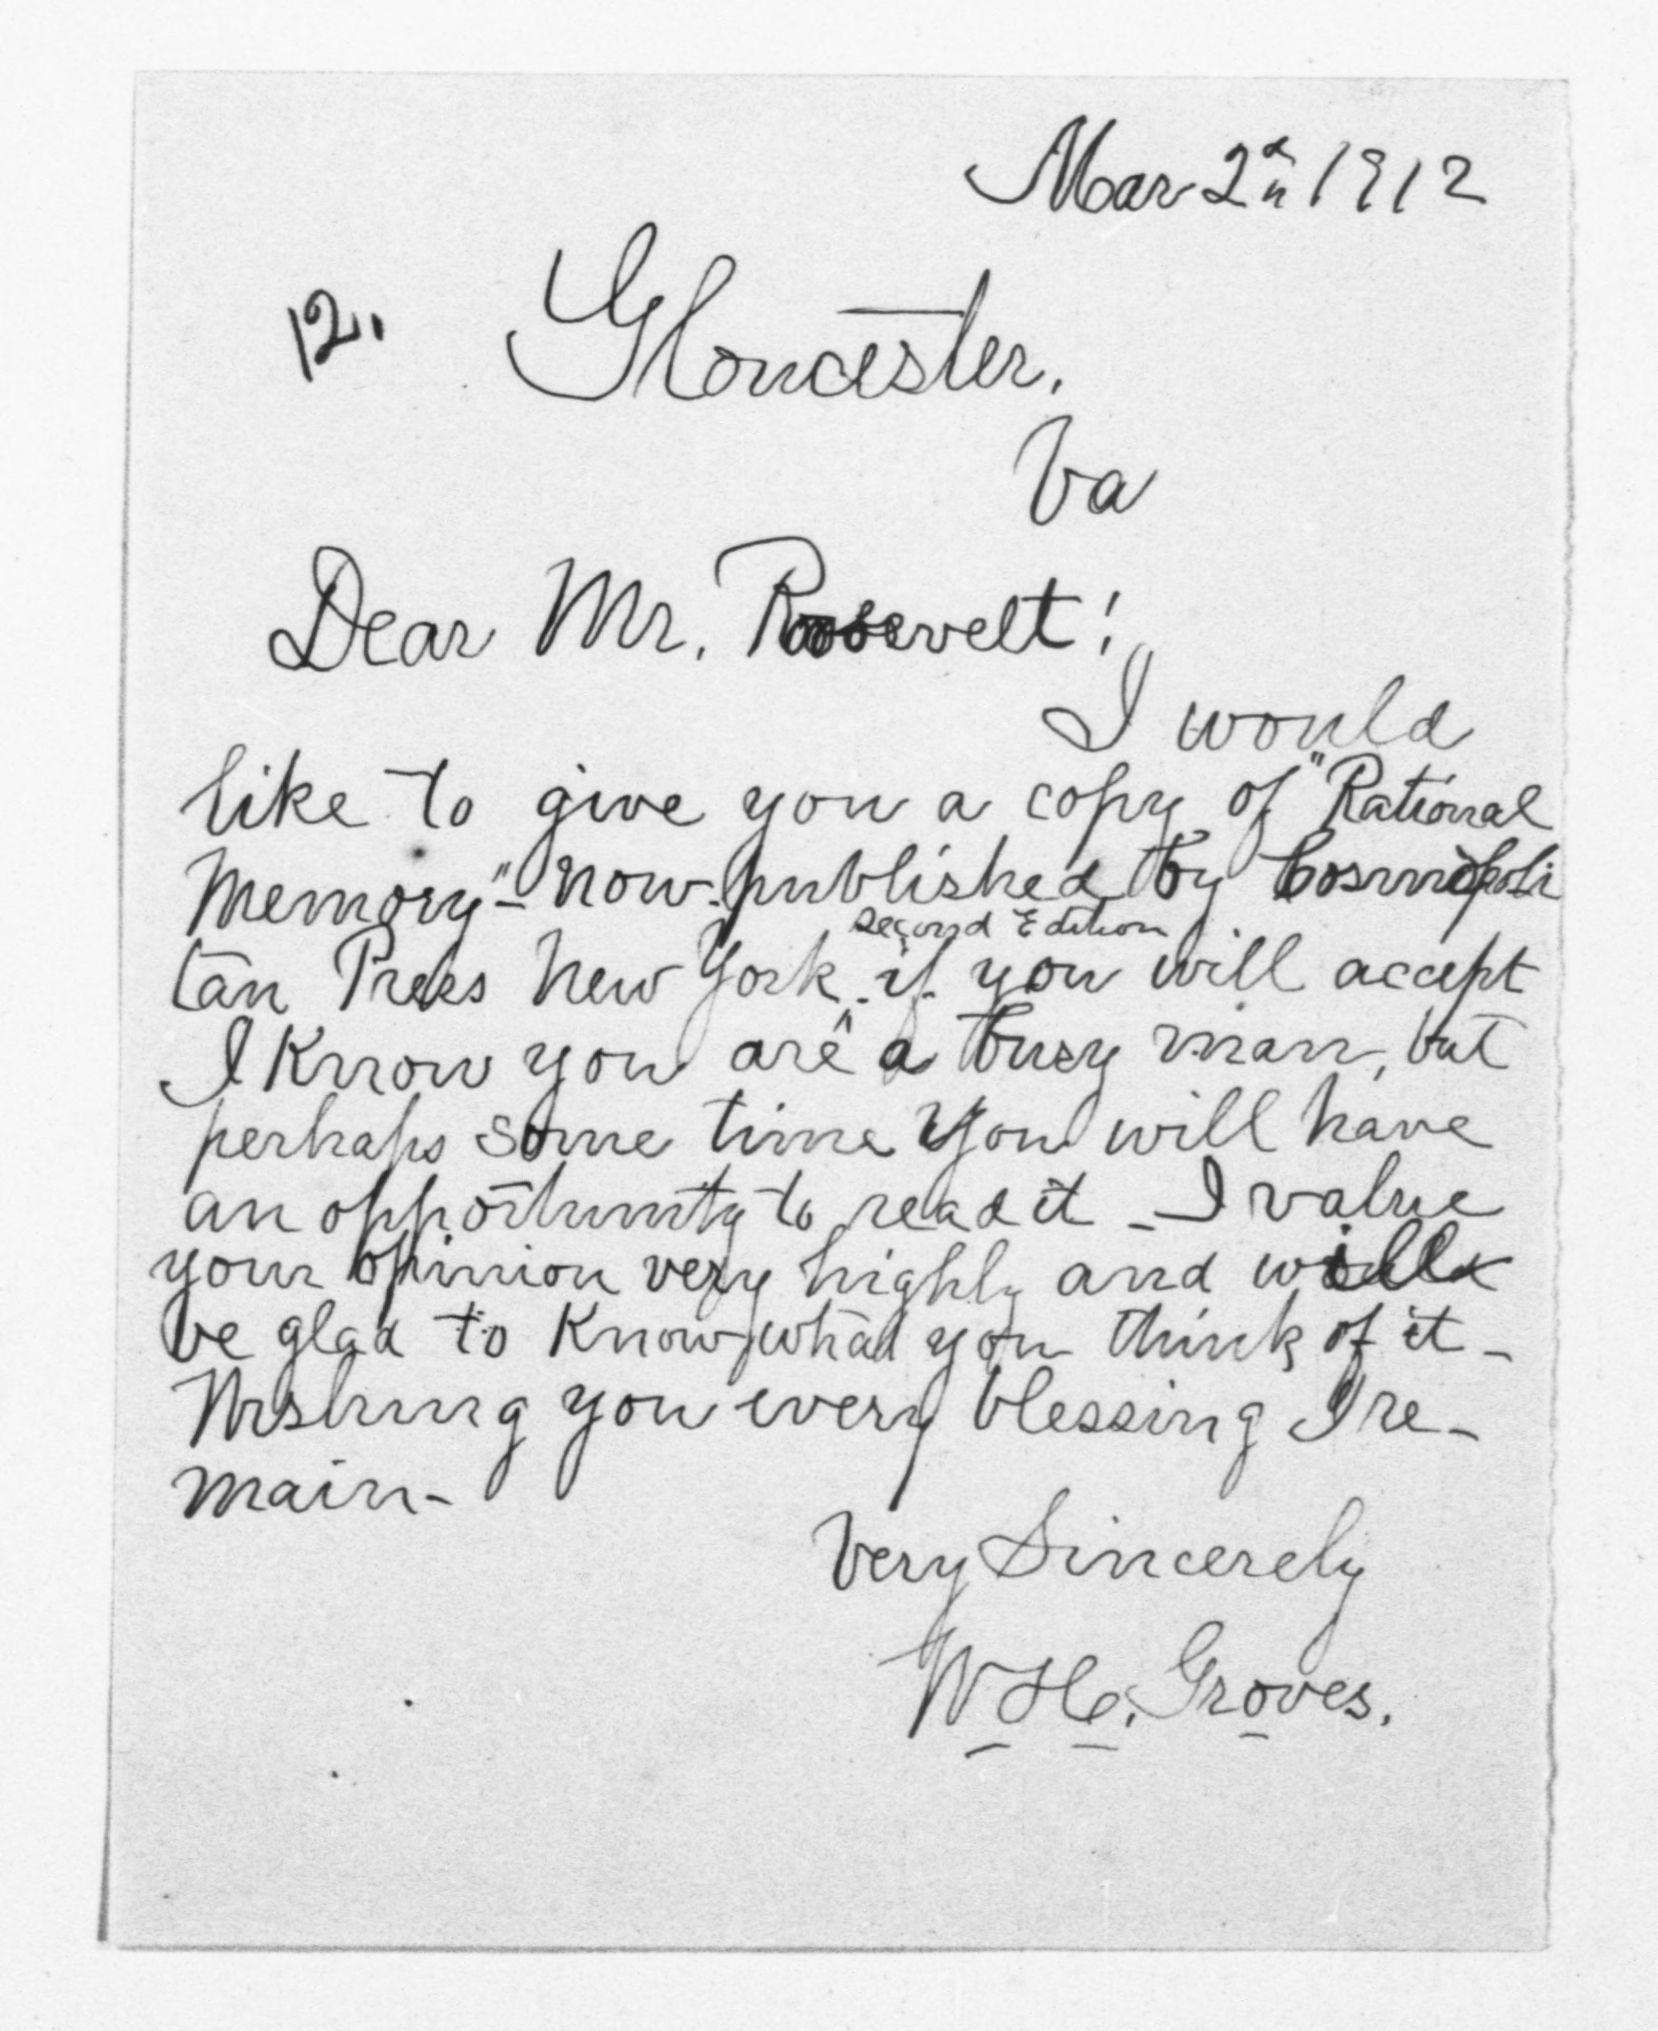 Mar 2nd 1912
12.
Gloucester.
Va
Dear Mr. Roosevelt!
I would
like to give you a copy of "Rational
Memory" - now published by Cosmopoli
tan Press New York. if you will accept
second Edition
^
I know you are a busy man, but
perhaps some time you will have
an opportunity to read it - I value
your opinion very highly and would
be glad to know what you think of it -
Wishing you every blessing I re-
main -
Very Sincerely
W H. Groves.